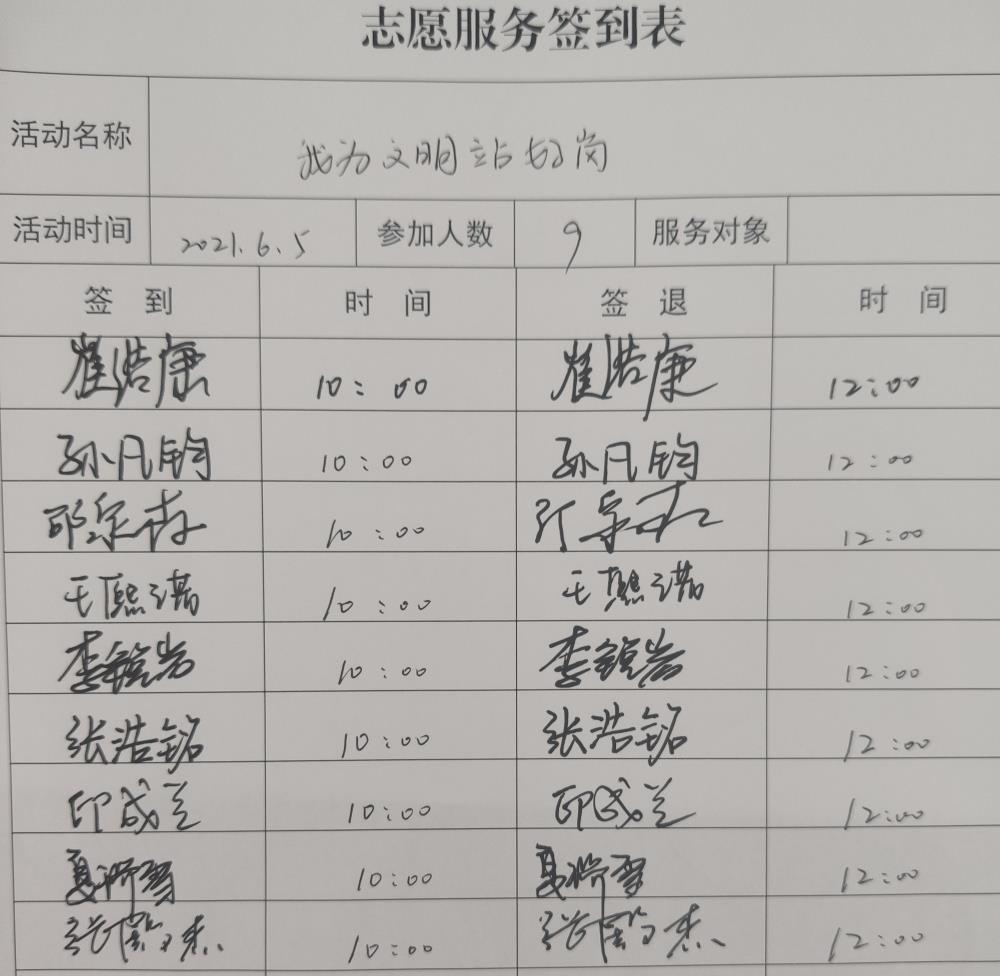 志愿服务签到表
活动名称 我为文明站好岗
活动时间 2021.6.5 参加人数 9 服务对象
签到 时间 签退 时间
崔浩康 10:00 崔浩康 12:00
孙凡钧 10:00 孙凡钧 12:00
10:00 12:00
王熙之诺 10:00 王熙之诺 12:00
李锐岩 10:00 李锐岩 12:00
张浩铭 10:00 张浩铭 12:00
印成兰 10:00 印成兰 12:00
夏 10:00 夏 12:00
张 杰 10:00 张 杰 12:00